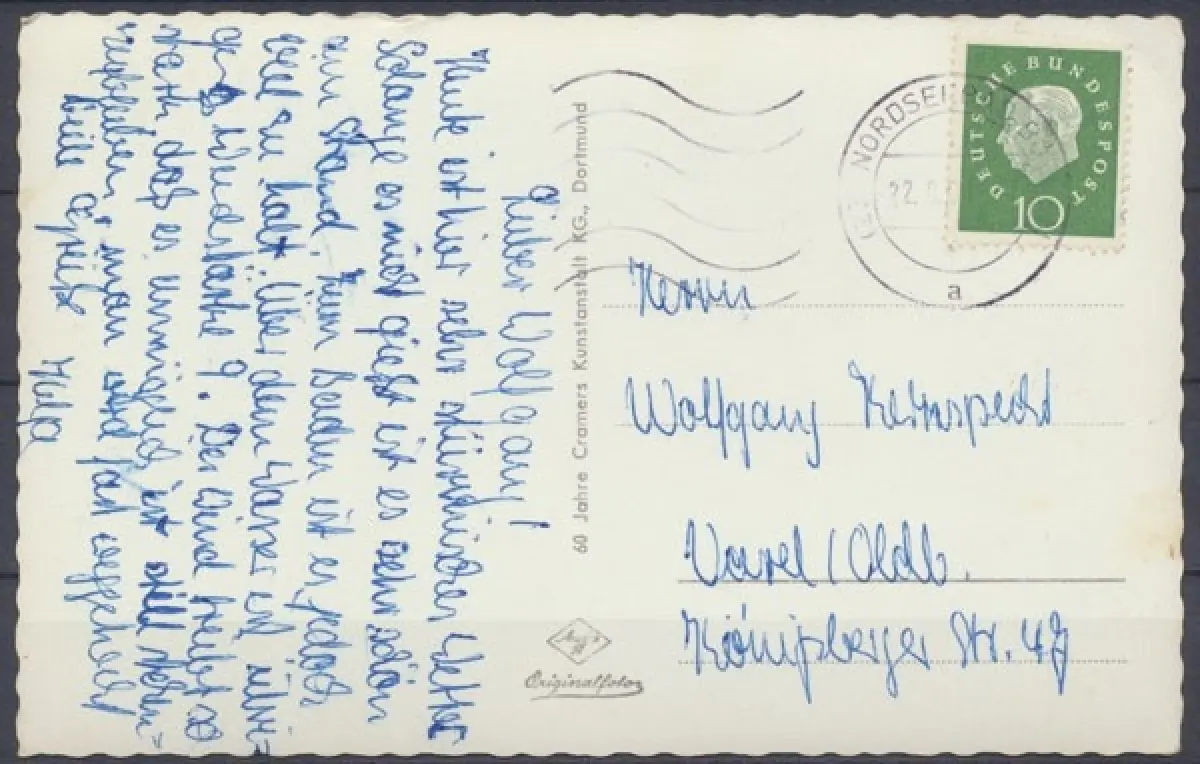 Lieber Wolfgang!
Heute ist hier sehr stürmisches Wetter
Solange es nicht gießt ist es sehr schön
am Strand. Zum Baden ist es jedoch
viel zu kalt. Über dem Wasser ist übri=
gens Windstärke 9. Der Wind treibt so
stark, daß es unmöglich ist still stehen=
zubleiben, man wird fast weggeweht
Viele Grüße
Helga
60 Jahre Cramers Kunstanstalt KG., Dortmund
Agfa
Originalfoto
NORDSEE
22.
a
DEUTSCHE BUNDESPOST
10
Herrn
Wolfgang
Varel / Oldb.
Königsberger Str. 47